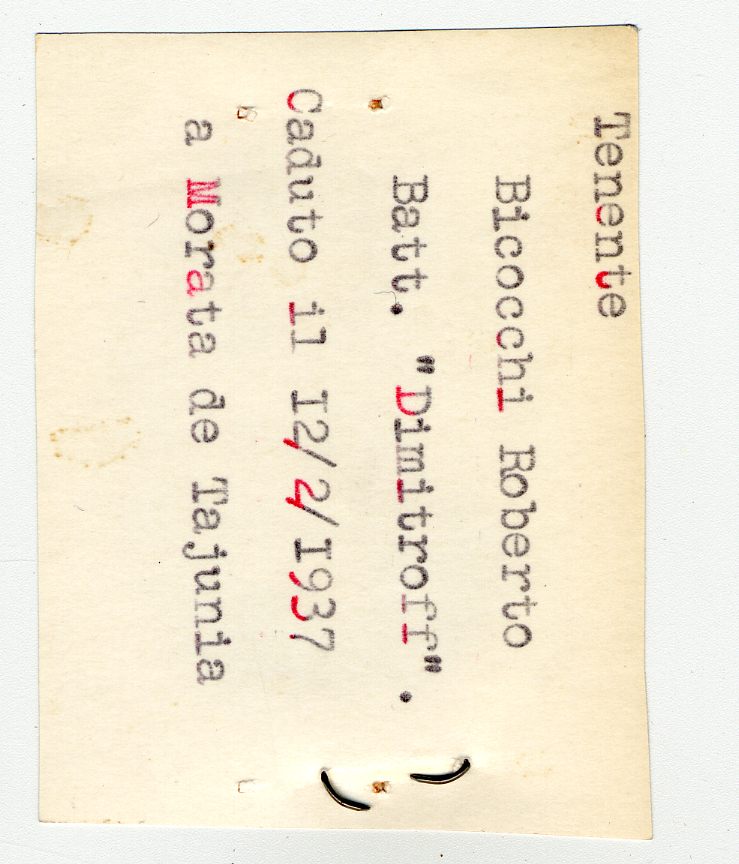 Tenente
Bicocchi Roberto
Batt. "Dimitroff".
Caduto il I2/2/I937
a Morata de Tajunia